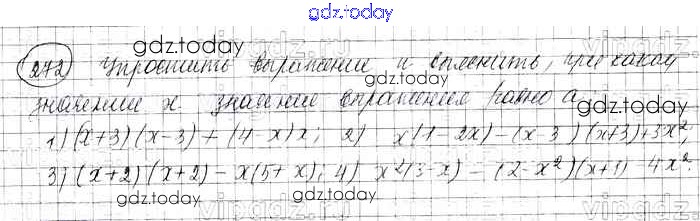 gdz.today
gdz.today
272 Упростить выражение и выяснить, при каком
gdz.today
значении x значение выражения равно a
1) (x+3)(x-3)+(4-x)x; 2) x(1-2x)-(x 3)(x+3)+3x²,
gdz.today
3) (x+2)(x+2)-x(5+x); 4) x²(3-x)-(2-x²)(x+1) 4x².
gdz.today
gdz.today